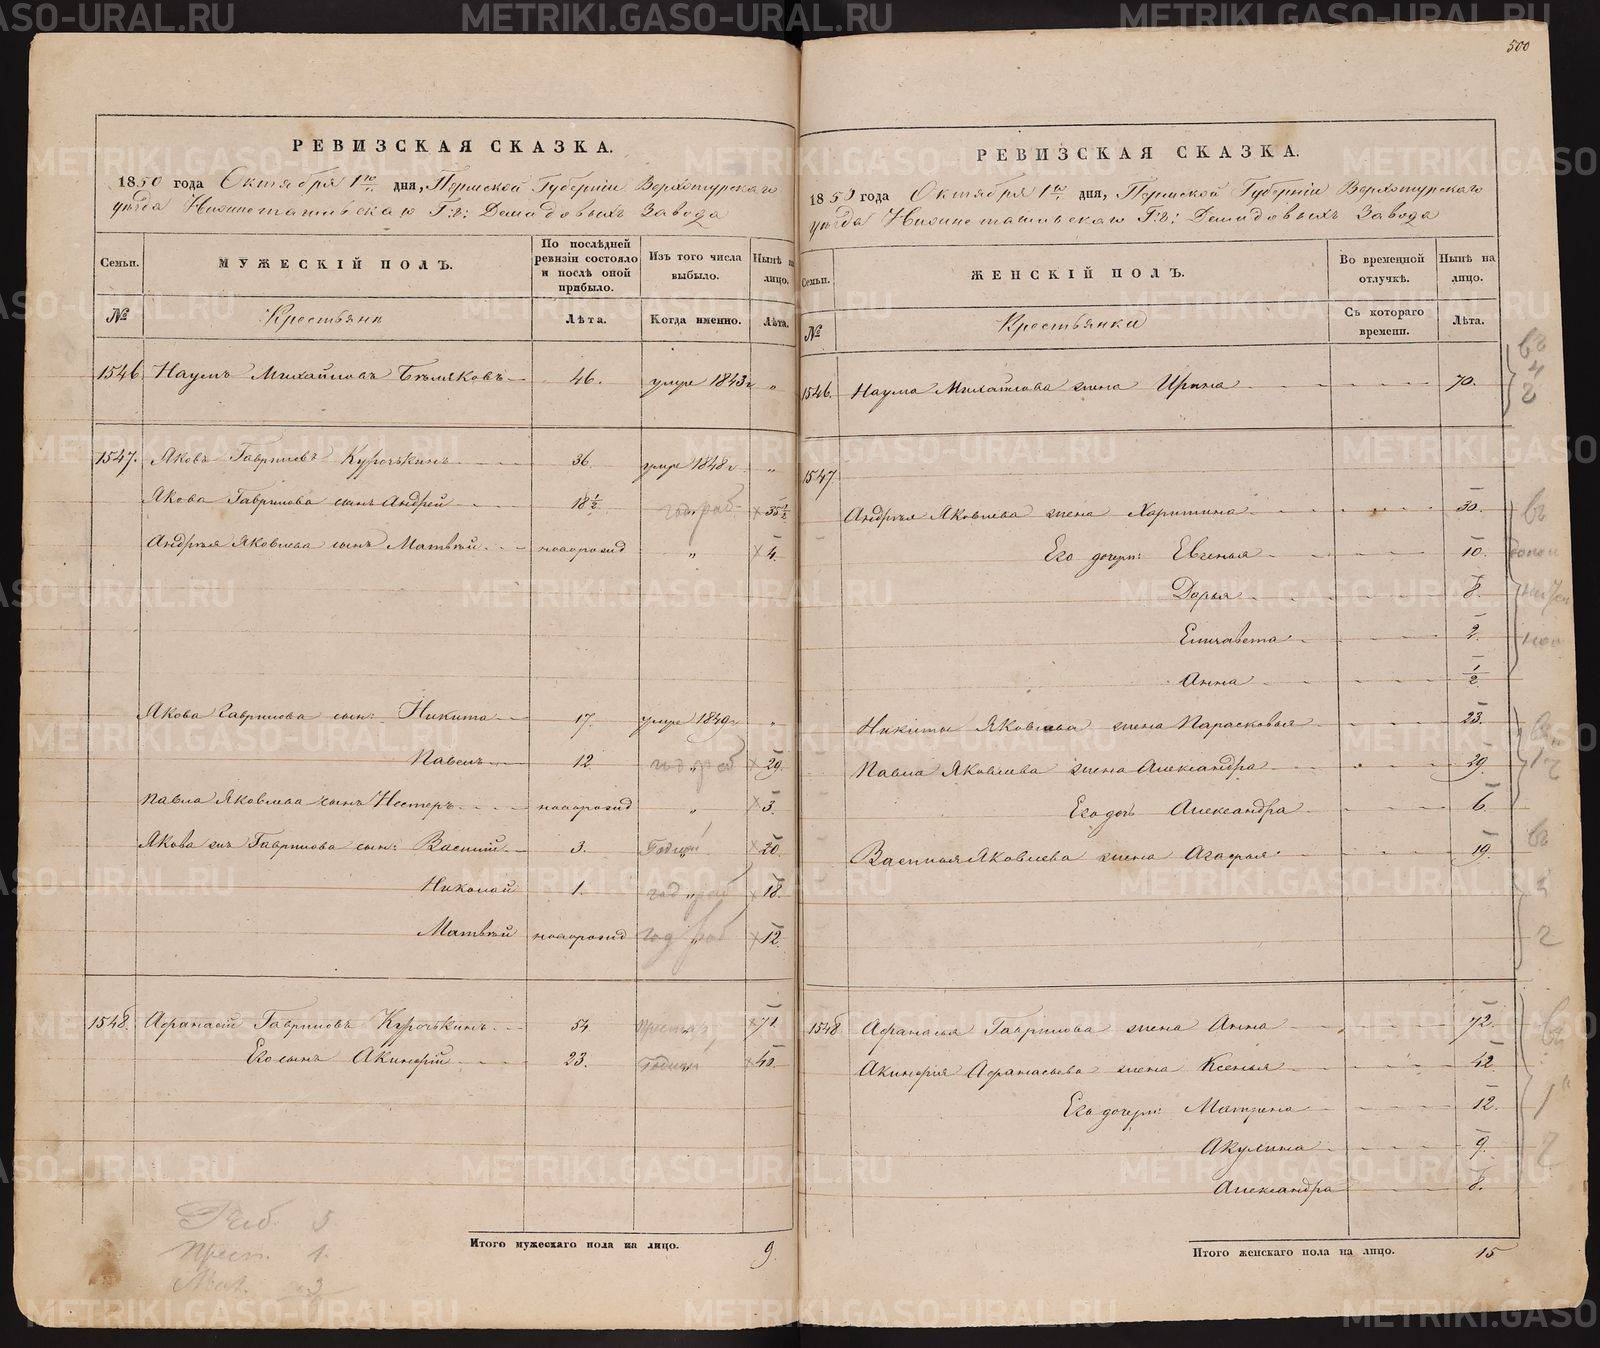 500
РЕВИЗСКАЯ СКАЗКА.
1850 года Октября 1го дня, Пермской Губерніи Верхотурскаго
уѣзда Нижнетагильскаго Г.г: Демидовыхъ Завода
Семьи. МУЖЕСКІЙ ПОЛЪ. По послѣдней ревизіи состояло и послѣ оной прибыло. Изъ того числа выбыло. Нынѣ на лицо.
№ Крестьяне Лѣта. Когда именно. Лѣта.
1546 Наумъ Михайловъ Бѣляковъ 46. умре 1843г „
1547. Яковъ Гавриловъ Курочькинъ 36. умре 1848г „
Якова Гаврилова сынъ Андрей 18 1/2 год. раб. 35 1/2
Андрѣя Яковлева сынъ Матвѣй новорожд „ 4.
Якова Гаврилова сын: Никита 17. умре 1849г „
Павелъ 12 год раб 29.
Павла Яковлева сынъ Нестеръ новорожд „ 3.
Якова жъ Гаврилова сын: Василій 3. Годный 20.
Николай 1. год раб 18.
Матвѣй новорожд год раб 12.
1548. Афанасій Гавриловъ Курочькинъ 54. 71.
Его сынъ Акинфій 23. Годный 40.
Итого мужескаго пола на лицо. 9.
Раб. 5
Прест. 1.
Мал. 3
РЕВИЗСКАЯ СКАЗКА.
1850 года Октября 1го дня, Пермской Губерніи Верхотурскаго
уѣзда Нижнетагильскаго Г.г: Демидовыхъ Завода
Семьи. ЖЕНСКІЙ ПОЛЪ. Во временной отлучкѣ. Нынѣ на лицо.
№ Крестьянки Съ котораго времени. Лѣта.
1546. Наума Михайлова жена Ирина 70.
1547
Андрѣя Яковлева жена Харитина 30.
Его дочери: Евгенья 10.
Дарья 8.
Елизавета 2.
Анна 1/2
Никиты Яковлева жена Парасковья 23.
Павла Яковлева жена Александра 29.
Его дочь Александра 6.
Василья Яковлева жена Агафья 19.
1548 Афанасья Гаврилова жена Анна 72.
Акинфія Афанасьева жена Ксенья 42.
Его дочери: Матрена 12.
Акулина 9.
Александра 8.
Итого женскаго пола на лицо. 15
METRIKI.GASO-URAL.RU